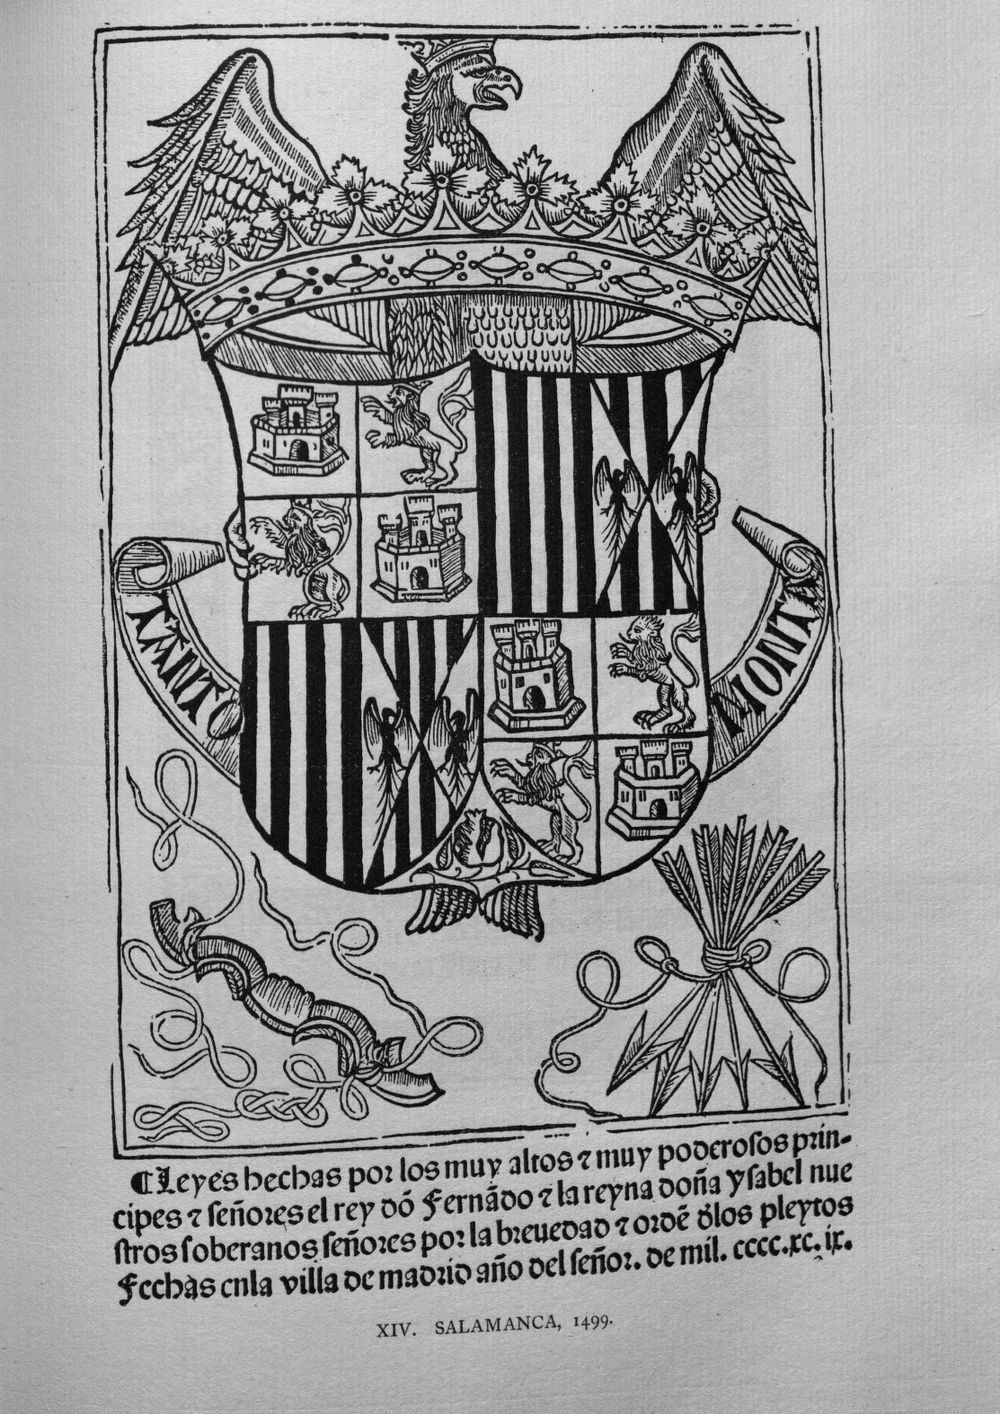 TĀNTO
MONTA
¶Leyes hechas por los muy altos ⁊ muy poderosos prin-
cipes ⁊ señores el rey dõ Fernãdo ⁊ la reyna doña Ysabel nue
stros soberanos señores por la breuedad ⁊ ordẽ d̃los pleytos
Fechas enla villa de madrid año del señor. de mil. cccc.xc.ix.
XIV. SALAMANCA, 1499.